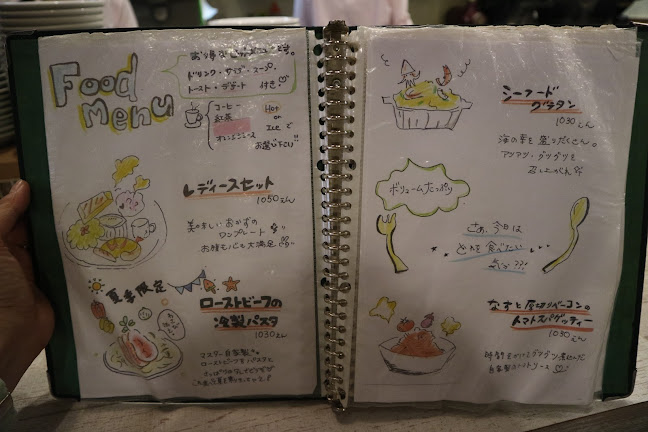 Food
Menu
お得なセットメニューです。
ドリンク・サラダ・スープ・
トースト・デザート 付き
コーヒー
紅茶
オレンジジュース
Hot
or
Iceで
お選び下さい!!
レディースセット
1050えん
美味しいおかずの
ワンプレート
お腹も心も大満足
夏季限定
ローストビーフの
冷製パスタ
1030えん
マスター自家製の
ローストビーフをパスタと
シーフード
グラタン
1030えん
海の幸を盛りだくさん。
アツアツ・グツグツを
召し上がれ
ボリュームたっぷり
さぁ、今日は
どれを食べたい
気分??!
なすと厚切りベーコンの
トマトスパゲッティー
1030えん
時間をかけてグツグツ煮込んだ
自家製のトマトソース